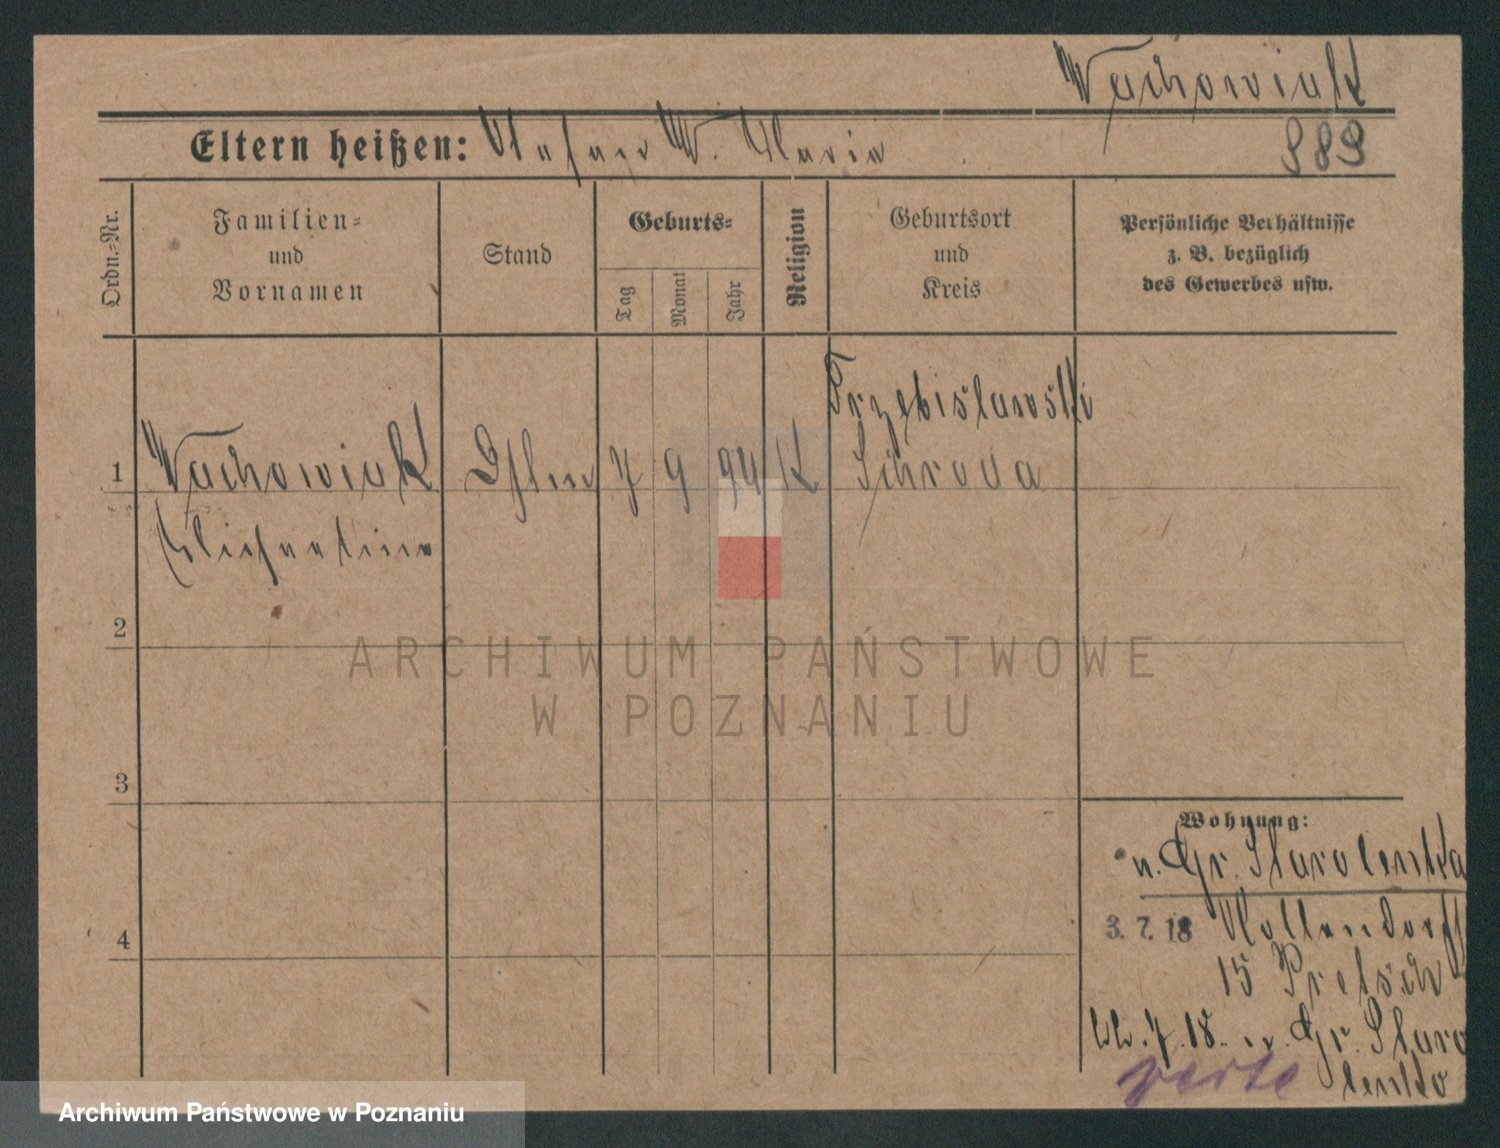 Wachowiak
Eltern heißen: W. Maria
989
Ordn.=Nr.
Familien=
und
Vornamen
Stand
Geburts=
Tag
Monat
Jahr
Religion
Geburtsort
und
Kreis
Persönliche Verhältnisse
z. B. bezüglich
des Gewerbes usw.
Trzebislawski
1 Wachowiak 7 9 94 K Schroda
2
3
4
Wohnung:
n. Gr. Starolenka
3. 7. 18
15
7. 18. n. Gr. Staro
lenka
verte
ARCHIWUM PAŃSTWOWE
W POZNANIU
Archiwum Państwowe w Poznaniu